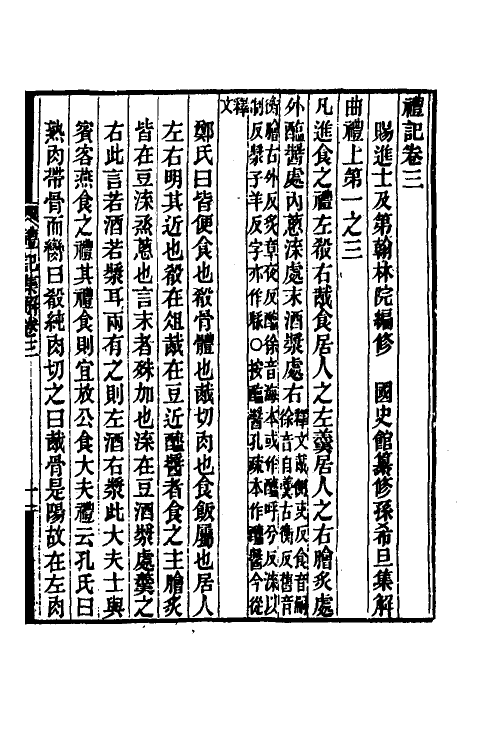 禮記卷三
賜進士及第翰林院編修　國史館纂修孫希旦集解
曲禮上第一之三
凡進食之禮左殽右胾食居人之左羹居人之右膾炙處
外醯醬處內蔥渫處末酒漿處右釋文胾側吏反食音嗣
徐音自羹古衡反舊音
衡膾古外反炙章夜反醯徐音海本或作醯呼兮反渫以
制反漿子羊反字亦作䊢○按醯醬孔疏本作醯醬今從
釋
文
鄭氏曰皆便食也殽骨體也胾切肉也食飯屬也居人
左右明其近也殽在俎胾在豆近醯醬者食之主膾炙
皆在豆渫烝蔥也言末者殊加也渫在豆酒漿處羹之
右此言若酒若漿耳兩有之則左酒右漿此大夫士與
賓客燕食之禮其禮食則宜放公食大夫禮云孔氏曰
熟肉帶骨而臠曰殽純肉切之曰胾骨是陽故在左肉
禮記集解卷三